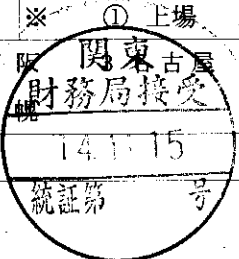 ※ ① 上場
阪 3 名古屋
幌
関東
財務局接受
14.11.15
統証第 号